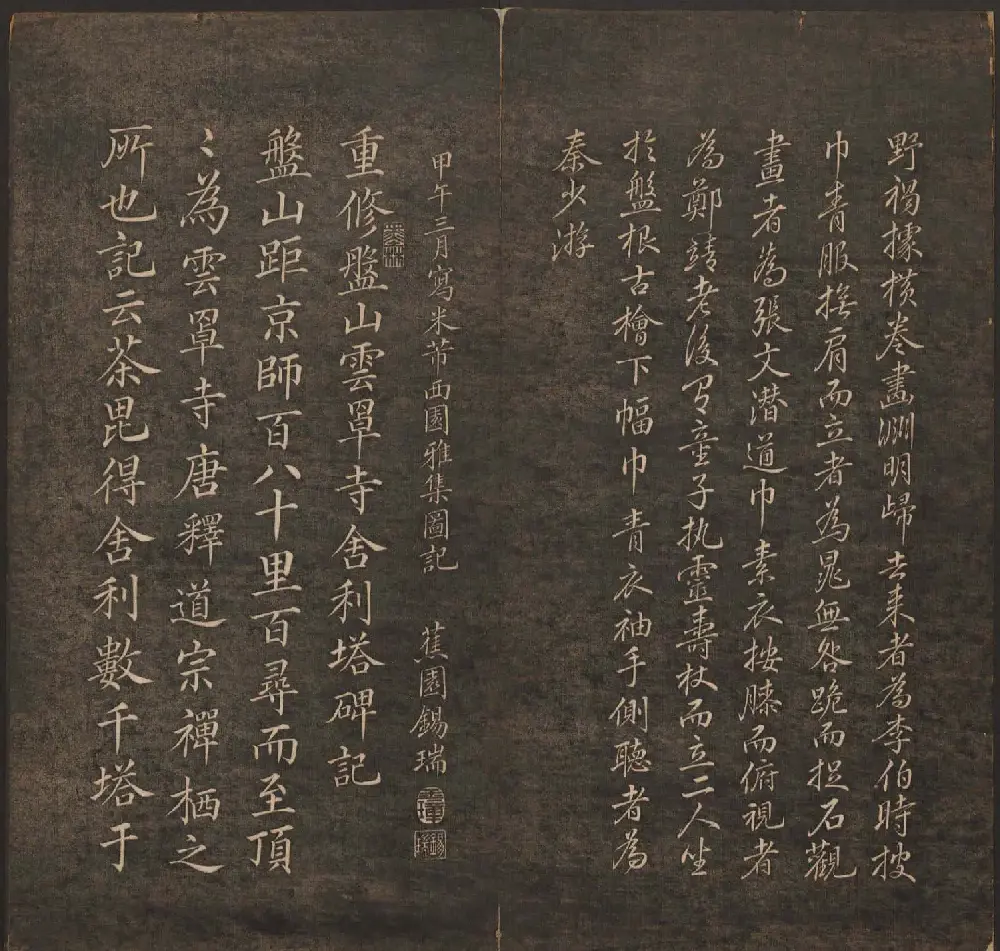 野褐據横卷畫淵明歸去来者為李伯時披
巾青服撫肩而立者為晁無咎跪而捉石觀
畫者為張文潛道巾素衣按膝而俯視者
為鄭靖老後有童子執靈壽杖而立二人坐
於盤根古檜下幅巾青衣袖手側聽者為
秦少游
甲午三月寫米芾西園雅集圖記 蕉園錫瑞
重修盤山雲罩寺舍利塔碑記
盤山距京師百八十里百尋而至頂
〻為雲罩寺唐釋道宗禪栖之
所也記云茶毘得舍利數千塔于